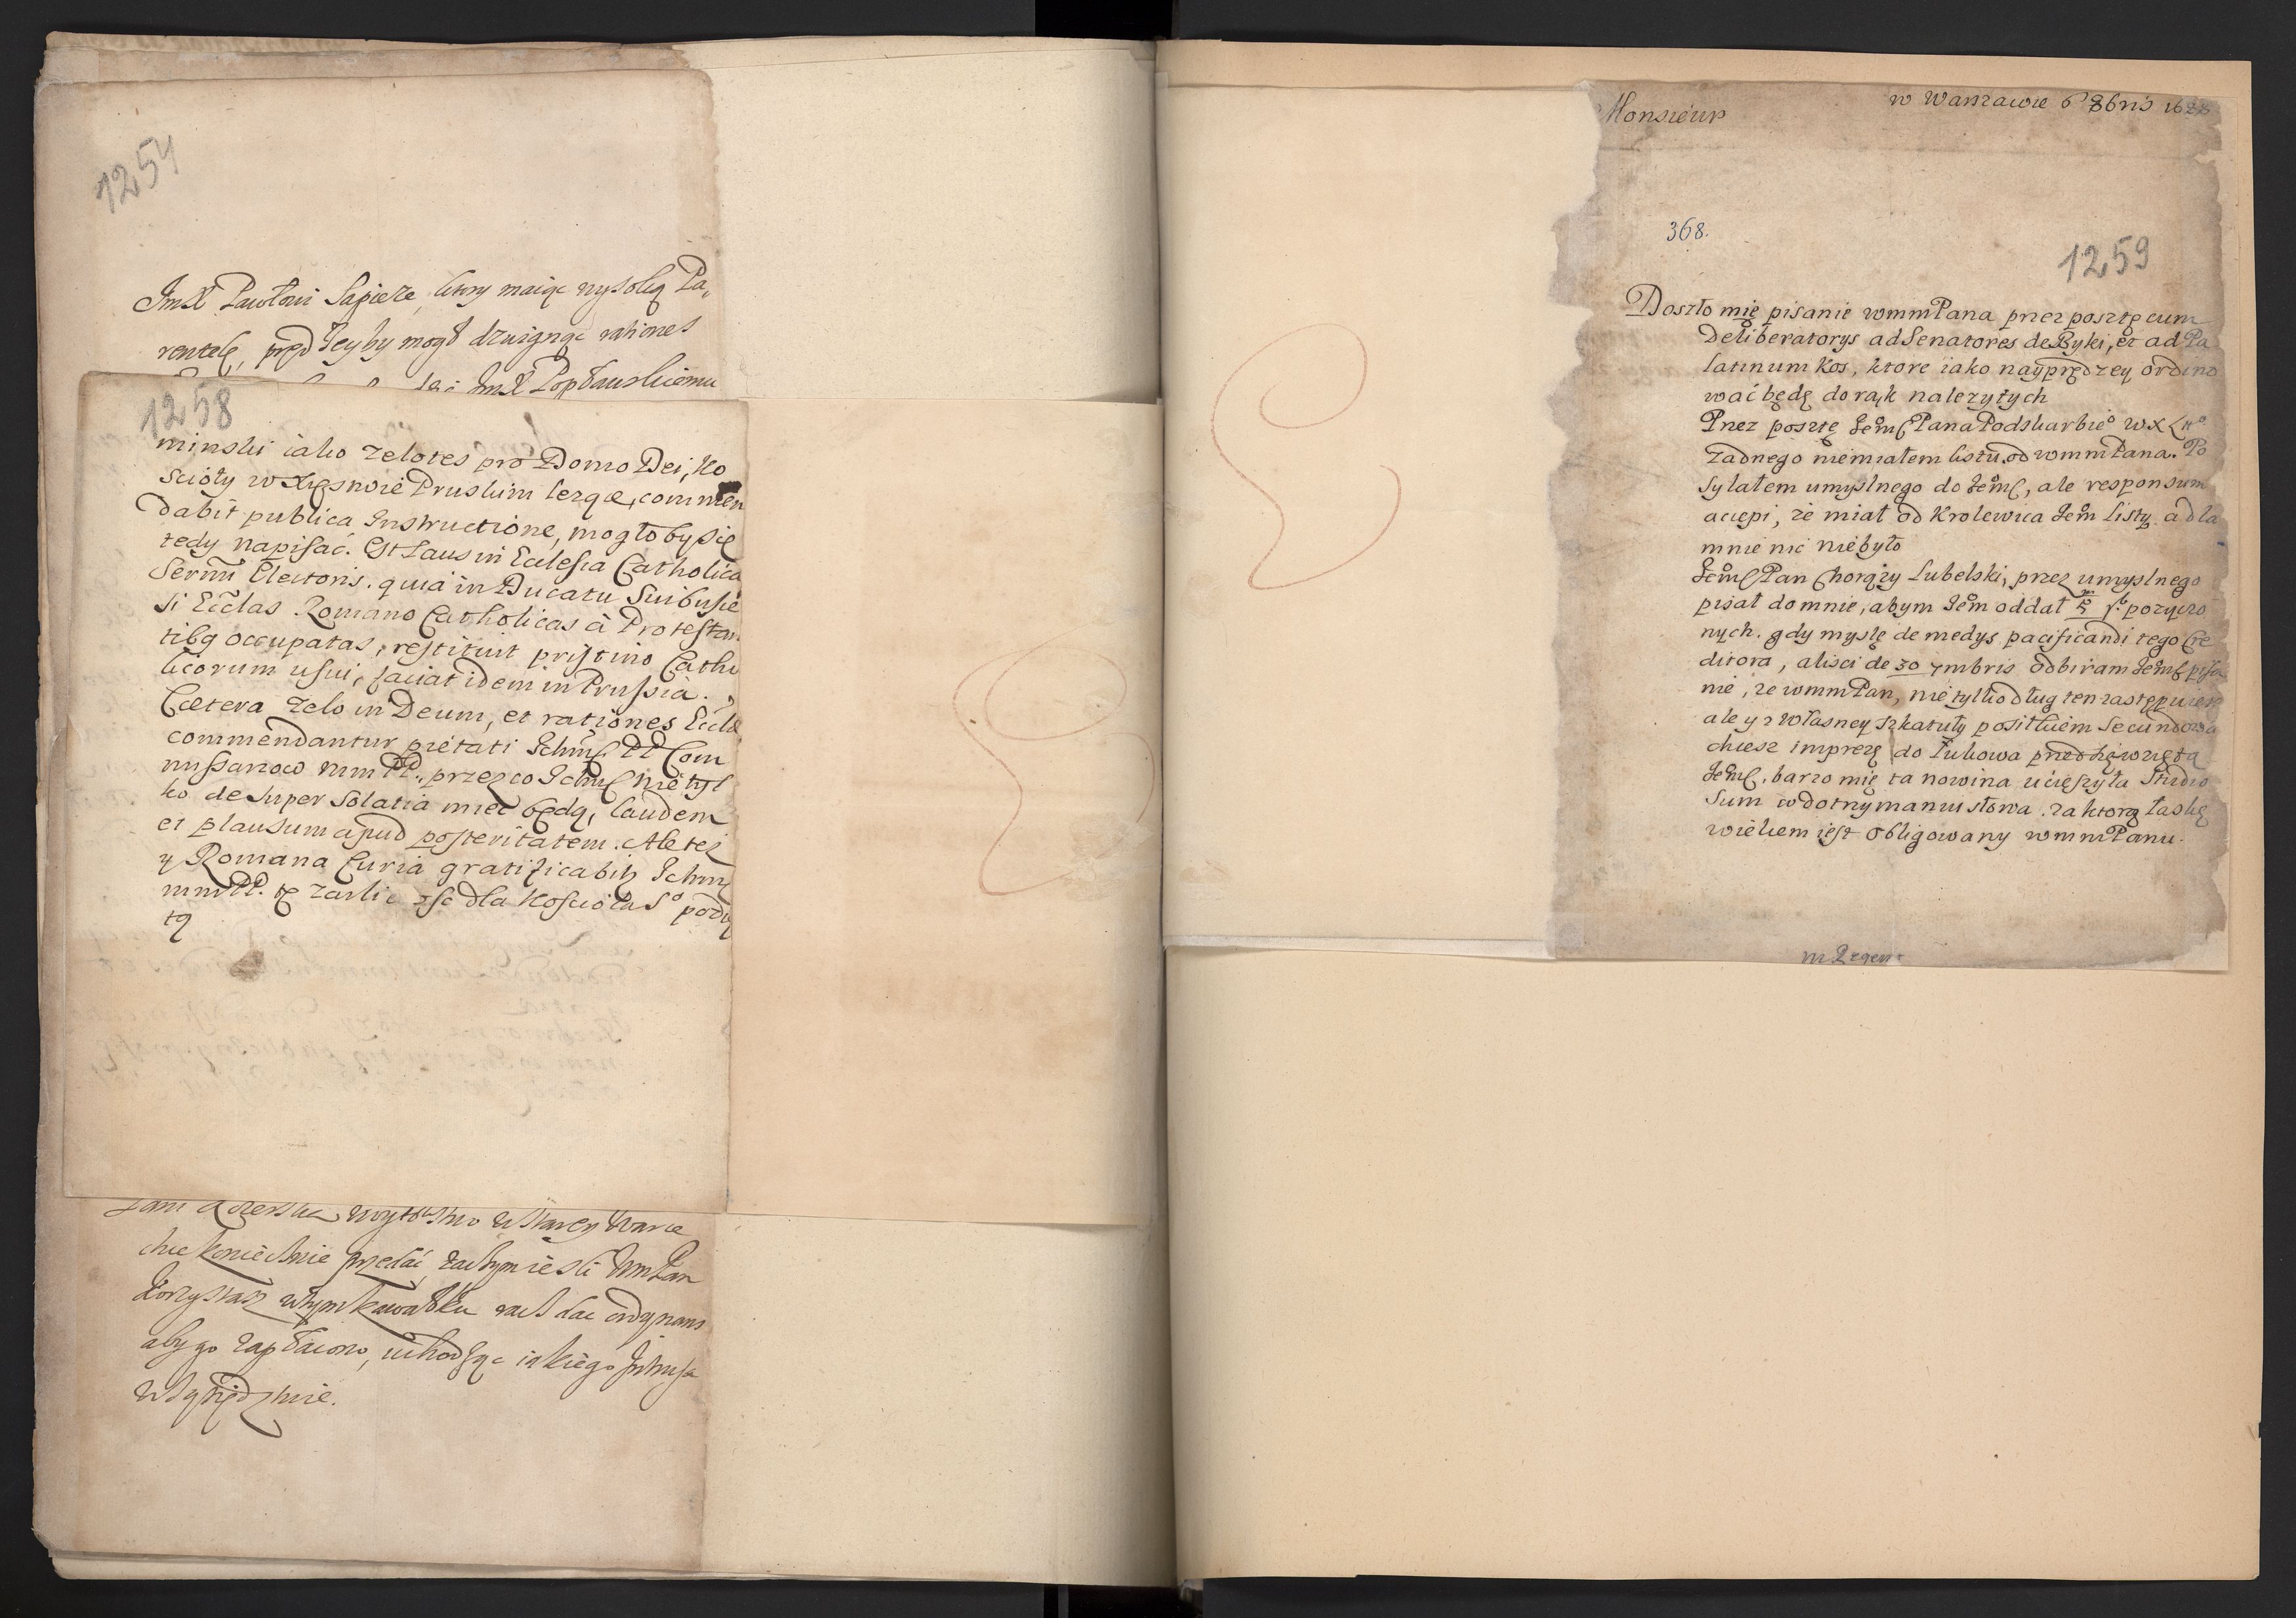 1254
ImX Pawłowi Sapieże, ktory maiąc wysoką Pa,
rentelę, pręd Jeyby mogł dzwignąć rationes
ImX Popławskiemu
1258
minski iako zelotes pro Domo Dei, Ko
scioły w Xięstwie Pruskim lezące, commen
dabit publica Instructione, mogłoby się
tedy napisać. Est Laus in Ecclesia Catholica
Sermi Electoris. quia in Ducatu Suibusie
si Ecclas Romano Catholicas à Protestan
tibq occupatas, restituit pristino Catho
licorum usui, faciat idem in Prussia.
Cætera zelo in Deum, et rationes Eccla
commendantur pietati Ichmć PP Com
missarzow mm PP., przez co Ichmć nie tyl
ko desuper solatia mieć będą, laudem
et plausum apud posteritatem. Ale też
y Romana Curia gratificabit Ichmć
mmPP. tę żarliwość dla Kościoła So podię
tą
woytostwo w Starey Warce
chce koniecznie przedać, zaczym iesli WmPan
korzystasz w tym kawałku racz dać ordynans
aby go zapłacono, uchodząc iakiego Intruza
w sąsiedztwie.
Monsieur
w Warszawie 6 8bris 1688
368.
1259
Doszło mię pisanie wmmPana przez posztę cum
Deliberatorys ad Senatores de Ryki, et ad Pa
latinum Kos, ktore iako nayprędzey ordino
wać będę do rąk należytych
Przez posztę JemćPana Podskarbieo WX Litto
żadnego niemiałem listu od wmmPana. Po
syłałem umyslnego do Jemć, ale responsum
accepi, że miał od Krolewica Jem listy. a dla
mnie nic niebyło
JemćPan Chorąży Lubelski, przez umyslnego
pisał domnie, abym Jem oddał 5 pożyczo
nych. gdy myslę de medys pacificandi tego Cre
ditora, alisci de 30 7mbris odbiram Jemć pisa
nie, że wmmPan, nie tylko dług ten zastępuiesz
ale y z własney szkatuły positkiem secundowa
chcesz imprezę do Łukowa przedsięwziętą
Jemć, barzo mię ta nowina ucięszyła Studio
sum w dotrzymaniu słowa. za ktorą łaskę
wiekiem iest obligowany wmmPanu.
m Regent